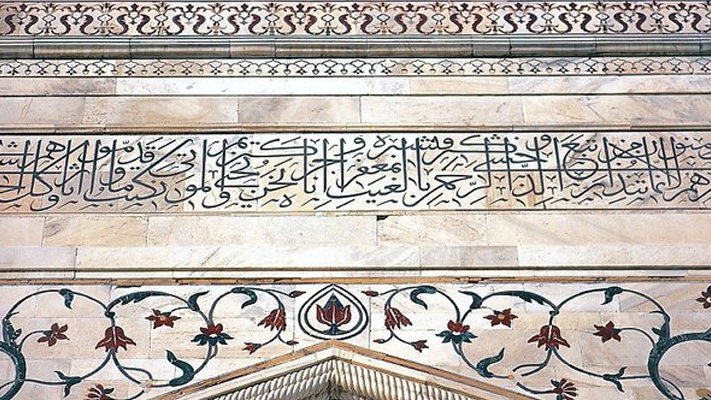 لا يؤمنون إنما تنذر من اتبع الذكر وخشي الرحمن بالغيب فبشره بمغفرة وأجر كريم إنا نحن نحي الموتى ونكتب ما قدموا وآثارهم وكل